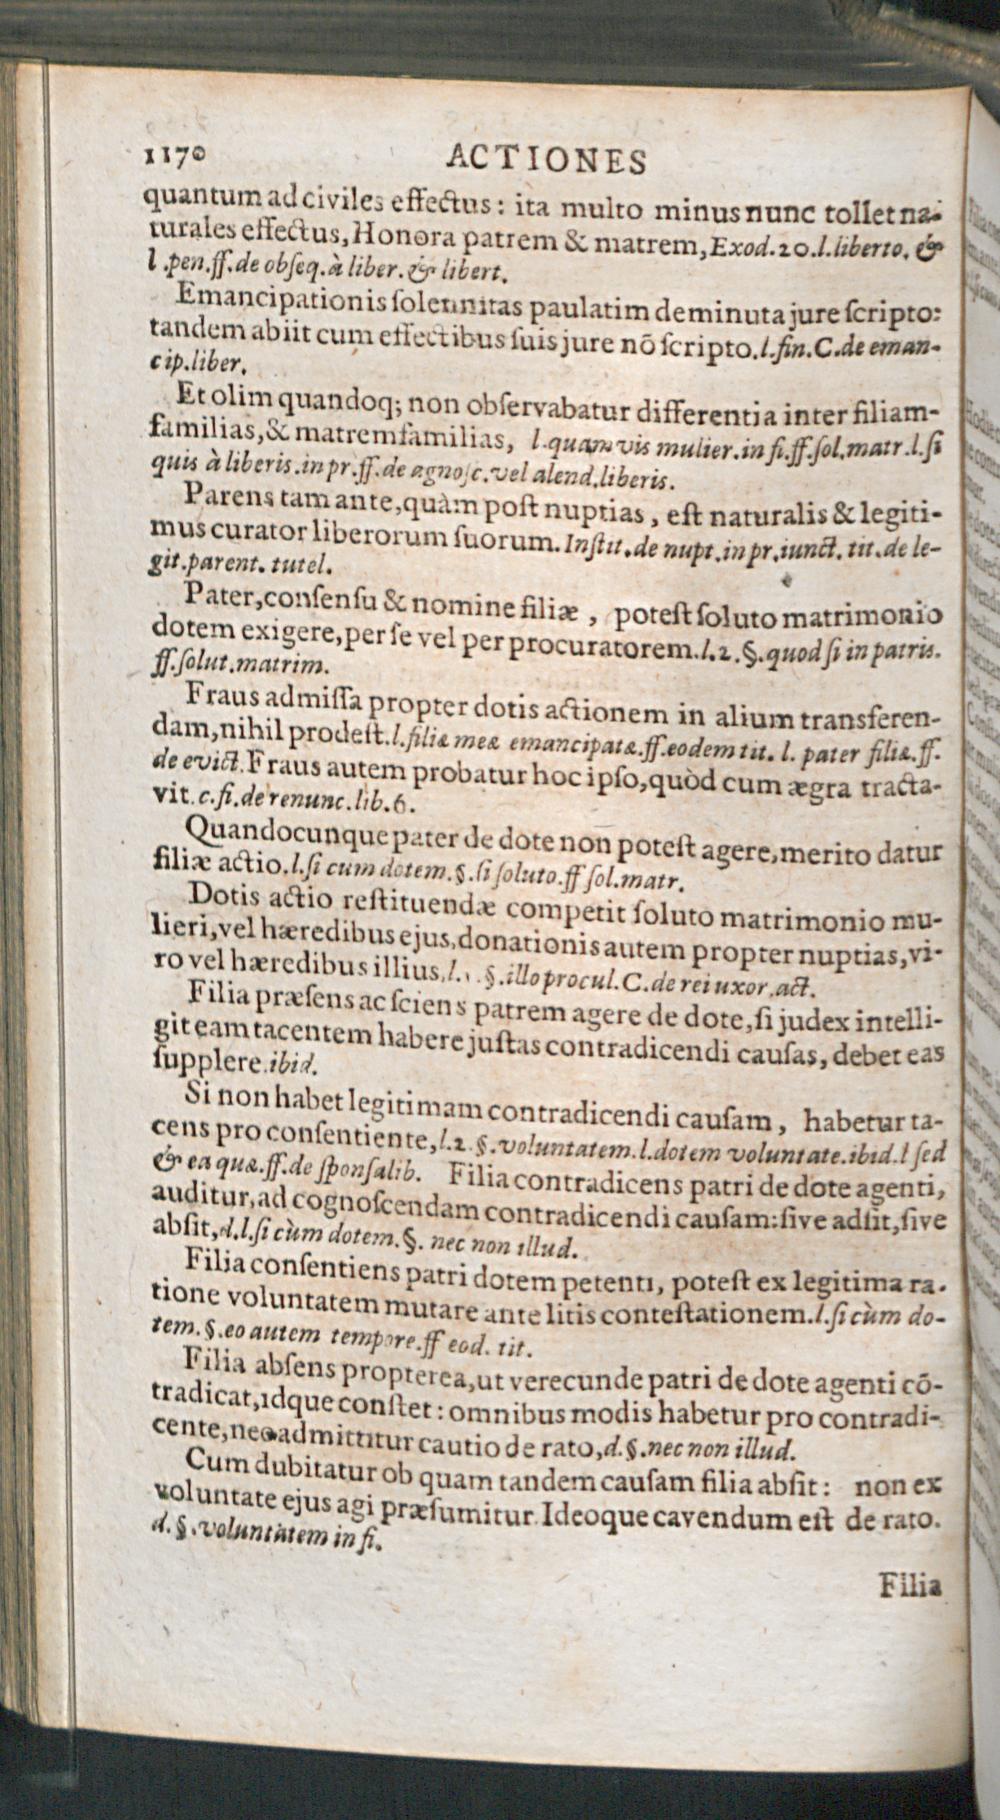 1170 ACTIONES
quantum ad civiles effectus: ita multo minus nunc tollet na-
turales effectus, Honora patrem & matrem, Exod. 20. l. liberto. &
l. pen. ff. de obseq. à liber. & libert.
Emancipationis solennitas paulatim deminuta jure scripto:
tandem abiit cum effectibus suis jure nō scripto. l. fin. C. de eman-
cip. liber.
Et olim quandoq; non observabatur differentia inter filiam-
familias, & matremfamilias, l. quamvis mulier. in fi. ff. sol. matr. l. si
quis à liberis. in pr. ff. de agnosc. vel alend. liberis.
Parens tam ante, quàm post nuptias, est naturalis & legiti-
mus curator liberorum suorum. Instit. de nupt. in pr. iunct. tit. de le-
git. parent. tutel.
Pater, consensu & nomine filiæ, potest soluto matrimonio
dotem exigere, per se vel per procuratorem. l. 2. §. quod si in patris.
ff. solut. matrim.
Fraus admissa propter dotis actionem in alium transferen-
dam, nihil prodest. l. filiæ meæ emancipatæ. ff. eodem tit. l. pater filiæ. ff.
de evict. Fraus autem probatur hoc ipso, quòd cum ægra tracta-
vit. c. fi. de renunc. lib. 6.
Quandocunque pater de dote non potest agere, merito datur
filiæ actio. l. si cum dotem. §. si soluto. ff sol. matr.
Dotis actio restituendæ competit soluto matrimonio mu-
lieri, vel hæredibus ejus, donationis autem propter nuptias, vi-
ro vel hæredibus illius, l. §. illo procul. C. de rei uxor. act.
Filia præsens ac sciens patrem agere de dote, si judex intelli-
git eam tacentem habere justas contradicendi causas, debet eas
supplere. ibid.
Si non habet legitimam contradicendi causam, habetur ta-
cens pro consentiente, l. 2. §. voluntatem. l. dotem voluntate. ibid. l sed
& ea quæ. ff. de sponsalib. Filia contradicens patri de dote agenti,
auditur, ad cognoscendam contradicendi causam: sive adsit, sive
absit, d. l. si cùm dotem. §. nec non illud.
Filia consentiens patri dotem petenti, potest ex legitima ra-
tione voluntatem mutare ante litis contestationem. l. si cùm do-
tem. §. eo autem tempore. ff eod. tit.
Filia absens propterea, ut verecunde patri de dote agenti cō-
tradicat, idque constet: omnibus modis habetur pro contradi-
cente, nec admittitur cautio de rato, d. §. nec non illud.
Cum dubitatur ob quam tandem causam filia absit: non ex
voluntate ejus agi præsumitur. Ideoque cavendum est de rato.
d. §. voluntatem in fi.
Filia